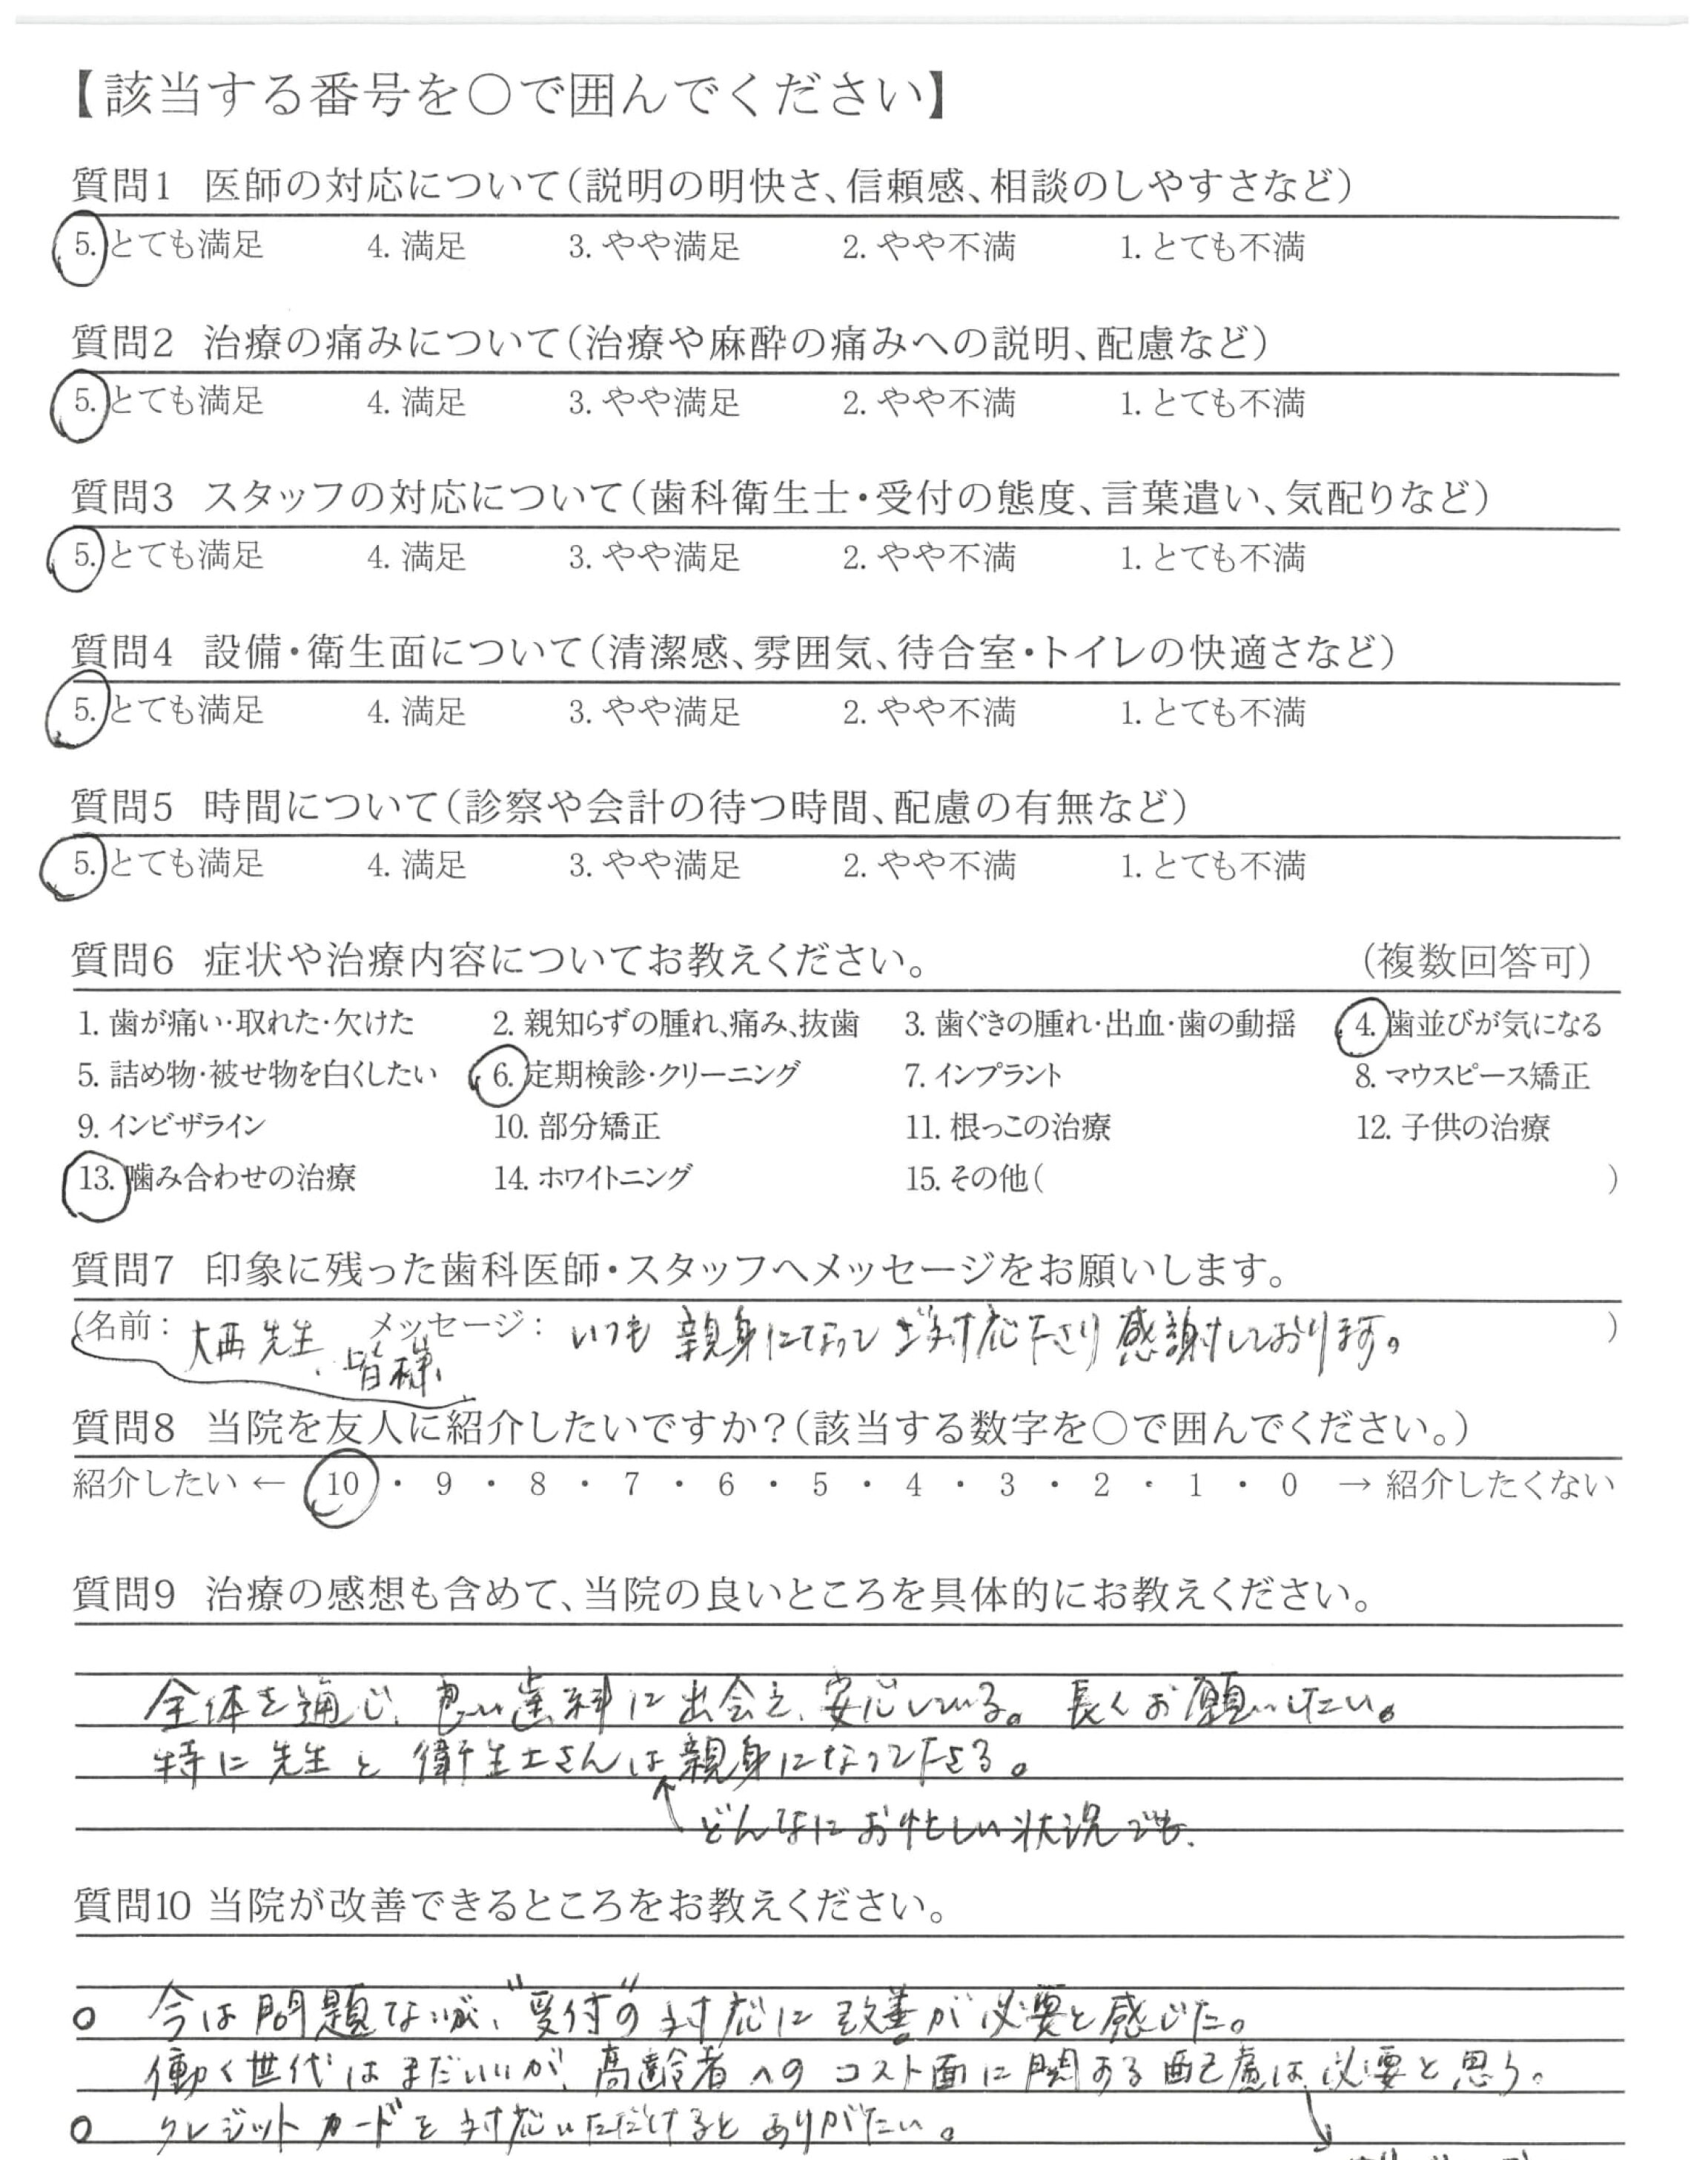 【該当する番号を○で囲んでください】
質問1 医師の対応について(説明の明快さ、信頼感、相談のしやすさなど)
5. とても満足 4. 満足 3. やや満足 2. やや不満 1. とても不満
質問2 治療の痛みについて(治療や麻酔の痛みへの説明、配慮など)
5. とても満足 4. 満足 3. やや満足 2. やや不満 1. とても不満
質問3 スタッフの対応について(歯科衛生士・受付の態度、言葉遣い、気配りなど)
5. とても満足 4. 満足 3. やや満足 2. やや不満 1. とても不満
質問4 設備・衛生面について(清潔感、雰囲気、待合室・トイレの快適さなど)
5. とても満足 4. 満足 3. やや満足 2. やや不満 1. とても不満
質問5 時間について(診察や会計の待つ時間、配慮の有無など)
5. とても満足 4. 満足 3. やや満足 2. やや不満 1. とても不満
質問6 症状や治療内容についてお教えください。 (複数回答可)
1. 歯が痛い・取れた・欠けた 2. 親知らずの腫れ、痛み、抜歯 3. 歯ぐきの腫れ・出血・歯の動揺 4. 歯並びが気になる
5. 詰め物・被せ物を白くしたい 6. 定期検診・クリーニング 7. インプラント 8. マウスピース矯正
9. インビザライン 10. 部分矯正 11. 根っこの治療 12. 子供の治療
13. 噛み合わせの治療 14. ホワイトニング 15. その他( )
質問7 印象に残った歯科医師・スタッフへメッセージをお願いします。
(名前: 大西先生、皆様、 メッセージ: いつも親身になってご対応下さり感謝しております。 )
質問8 当院を友人に紹介したいですか?(該当する数字を○で囲んでください。)
紹介したい ← 10 ・ 9 ・ 8 ・ 7 ・ 6 ・ 5 ・ 4 ・ 3 ・ 2 ・ 1 ・ 0 → 紹介したくない
質問9 治療の感想も含めて、当院の良いところを具体的にお教えください。
全体を通じ、良い歯科に出会え、安心している。長くお願いしたい。
特に先生と衛生士さんは親身になって下さる。
↑どんなにお忙しい状況でも、
質問10 当院が改善できるところをお教えください。
○ 今は問題ないが、"受付"の対応に改善が必要と感じた。
働く世代はまだいいが、高齢者へのコスト面に関する配慮は必要と思う。
○ クレジットカードを対応いただけるとありがたい。